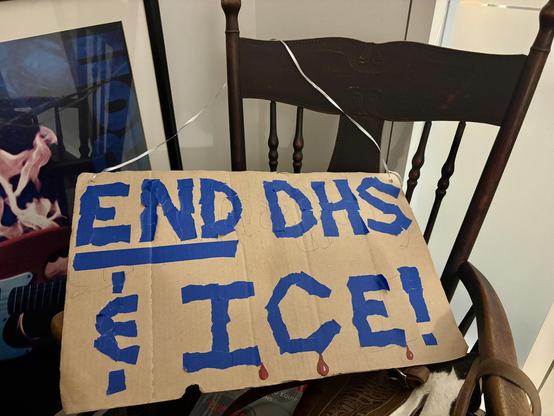 END DHS
& ICE!